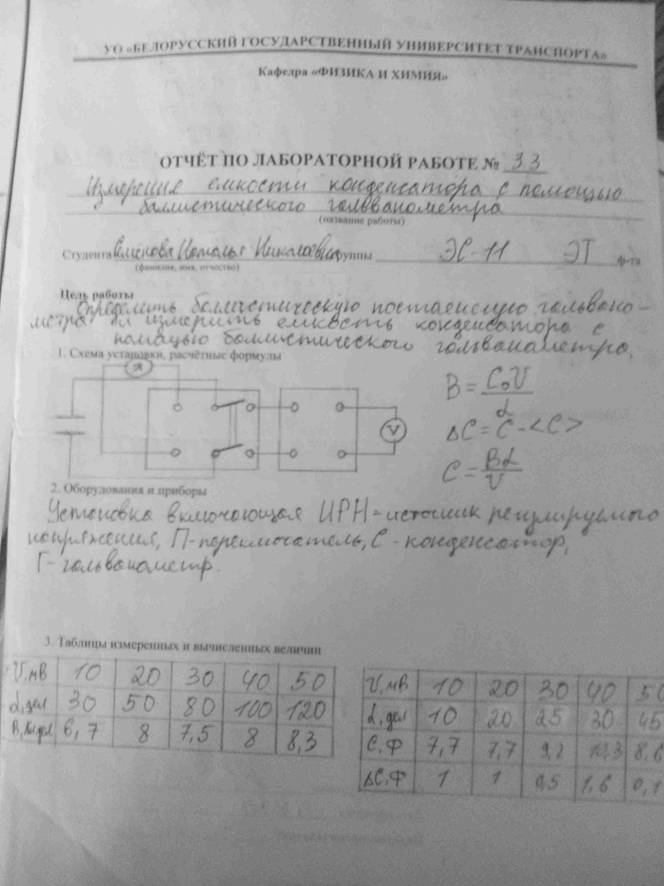 УО «БЕЛОРУССКИЙ ГОСУДАРСТВЕННЫЙ УНИВЕРСИТЕТ ТРАНСПОРТА»
Кафедра «ФИЗИКА И ХИМИЯ»
ОТЧЁТ ПО ЛАБОРАТОРНОЙ РАБОТЕ № 3.3
Измерения емкости конденсатора с помощью
баллистического гольванометра
(название работы)
Студента Николаевны группы ЭС-11 ЭТ ф-та
(фамилия, имя, отчество)
Цель работы
Определить баллистическую постаенсную гольвано-
метра и измерить емкость конденсатора с
помацью баллистического гольванаметра.
1. Схема установки, расчётные формулы
B = C₀U / α
ΔC = C - <C>
C = Bα / U
V
2. Оборудования и приборы
Установка включающая ИРН-источник регулируемого
напряжения, П-переключатель, С - конденсатор,
Г-гольванометр.
3. Таблицы измеренных и вычисленных величин
U, мВ 10 20 30 40 50
α, дел 30 50 80 100 120
B, 6,7 8 7,5 8 8,3
U, мВ 10 20 30 40 50
α, дел 10 20 25 30 45
C, Ф 7,7 7,7 9,2 10,3 8,6
ΔC, Ф 1 1 0,5 1,6 0,1